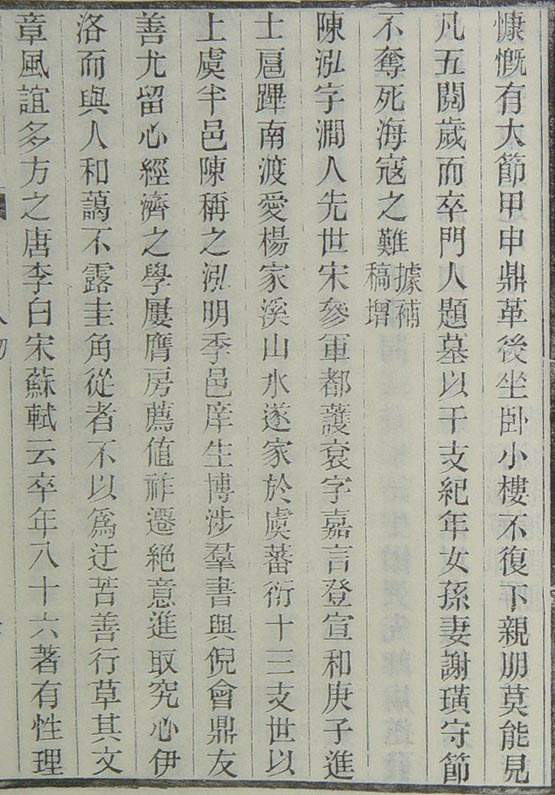 慷慨有大節甲申鼎革後坐卧小樓不復下親朋莫能見
凡五閱歲而卒門人題墓以干支紀年女孫妻謝璜守節
不奪死海寇之難據補稿增
陳泓字澗人先世宋參軍都護袞字嘉言登宣和庚子進
士扈蹕南渡愛楊家溪山水遂家於虞蕃衍十三支世以
上虞半邑陳稱之泓明季邑庠生博涉羣書與倪會鼎友
善尤留心經濟之學屢膺房薦值祚遷絕意進取究心伊
洛而與人和藹不露圭角從者不以為迂苦善行草其文
章風誼多方之唐李白宋蘇軾云卒年八十六著有性理